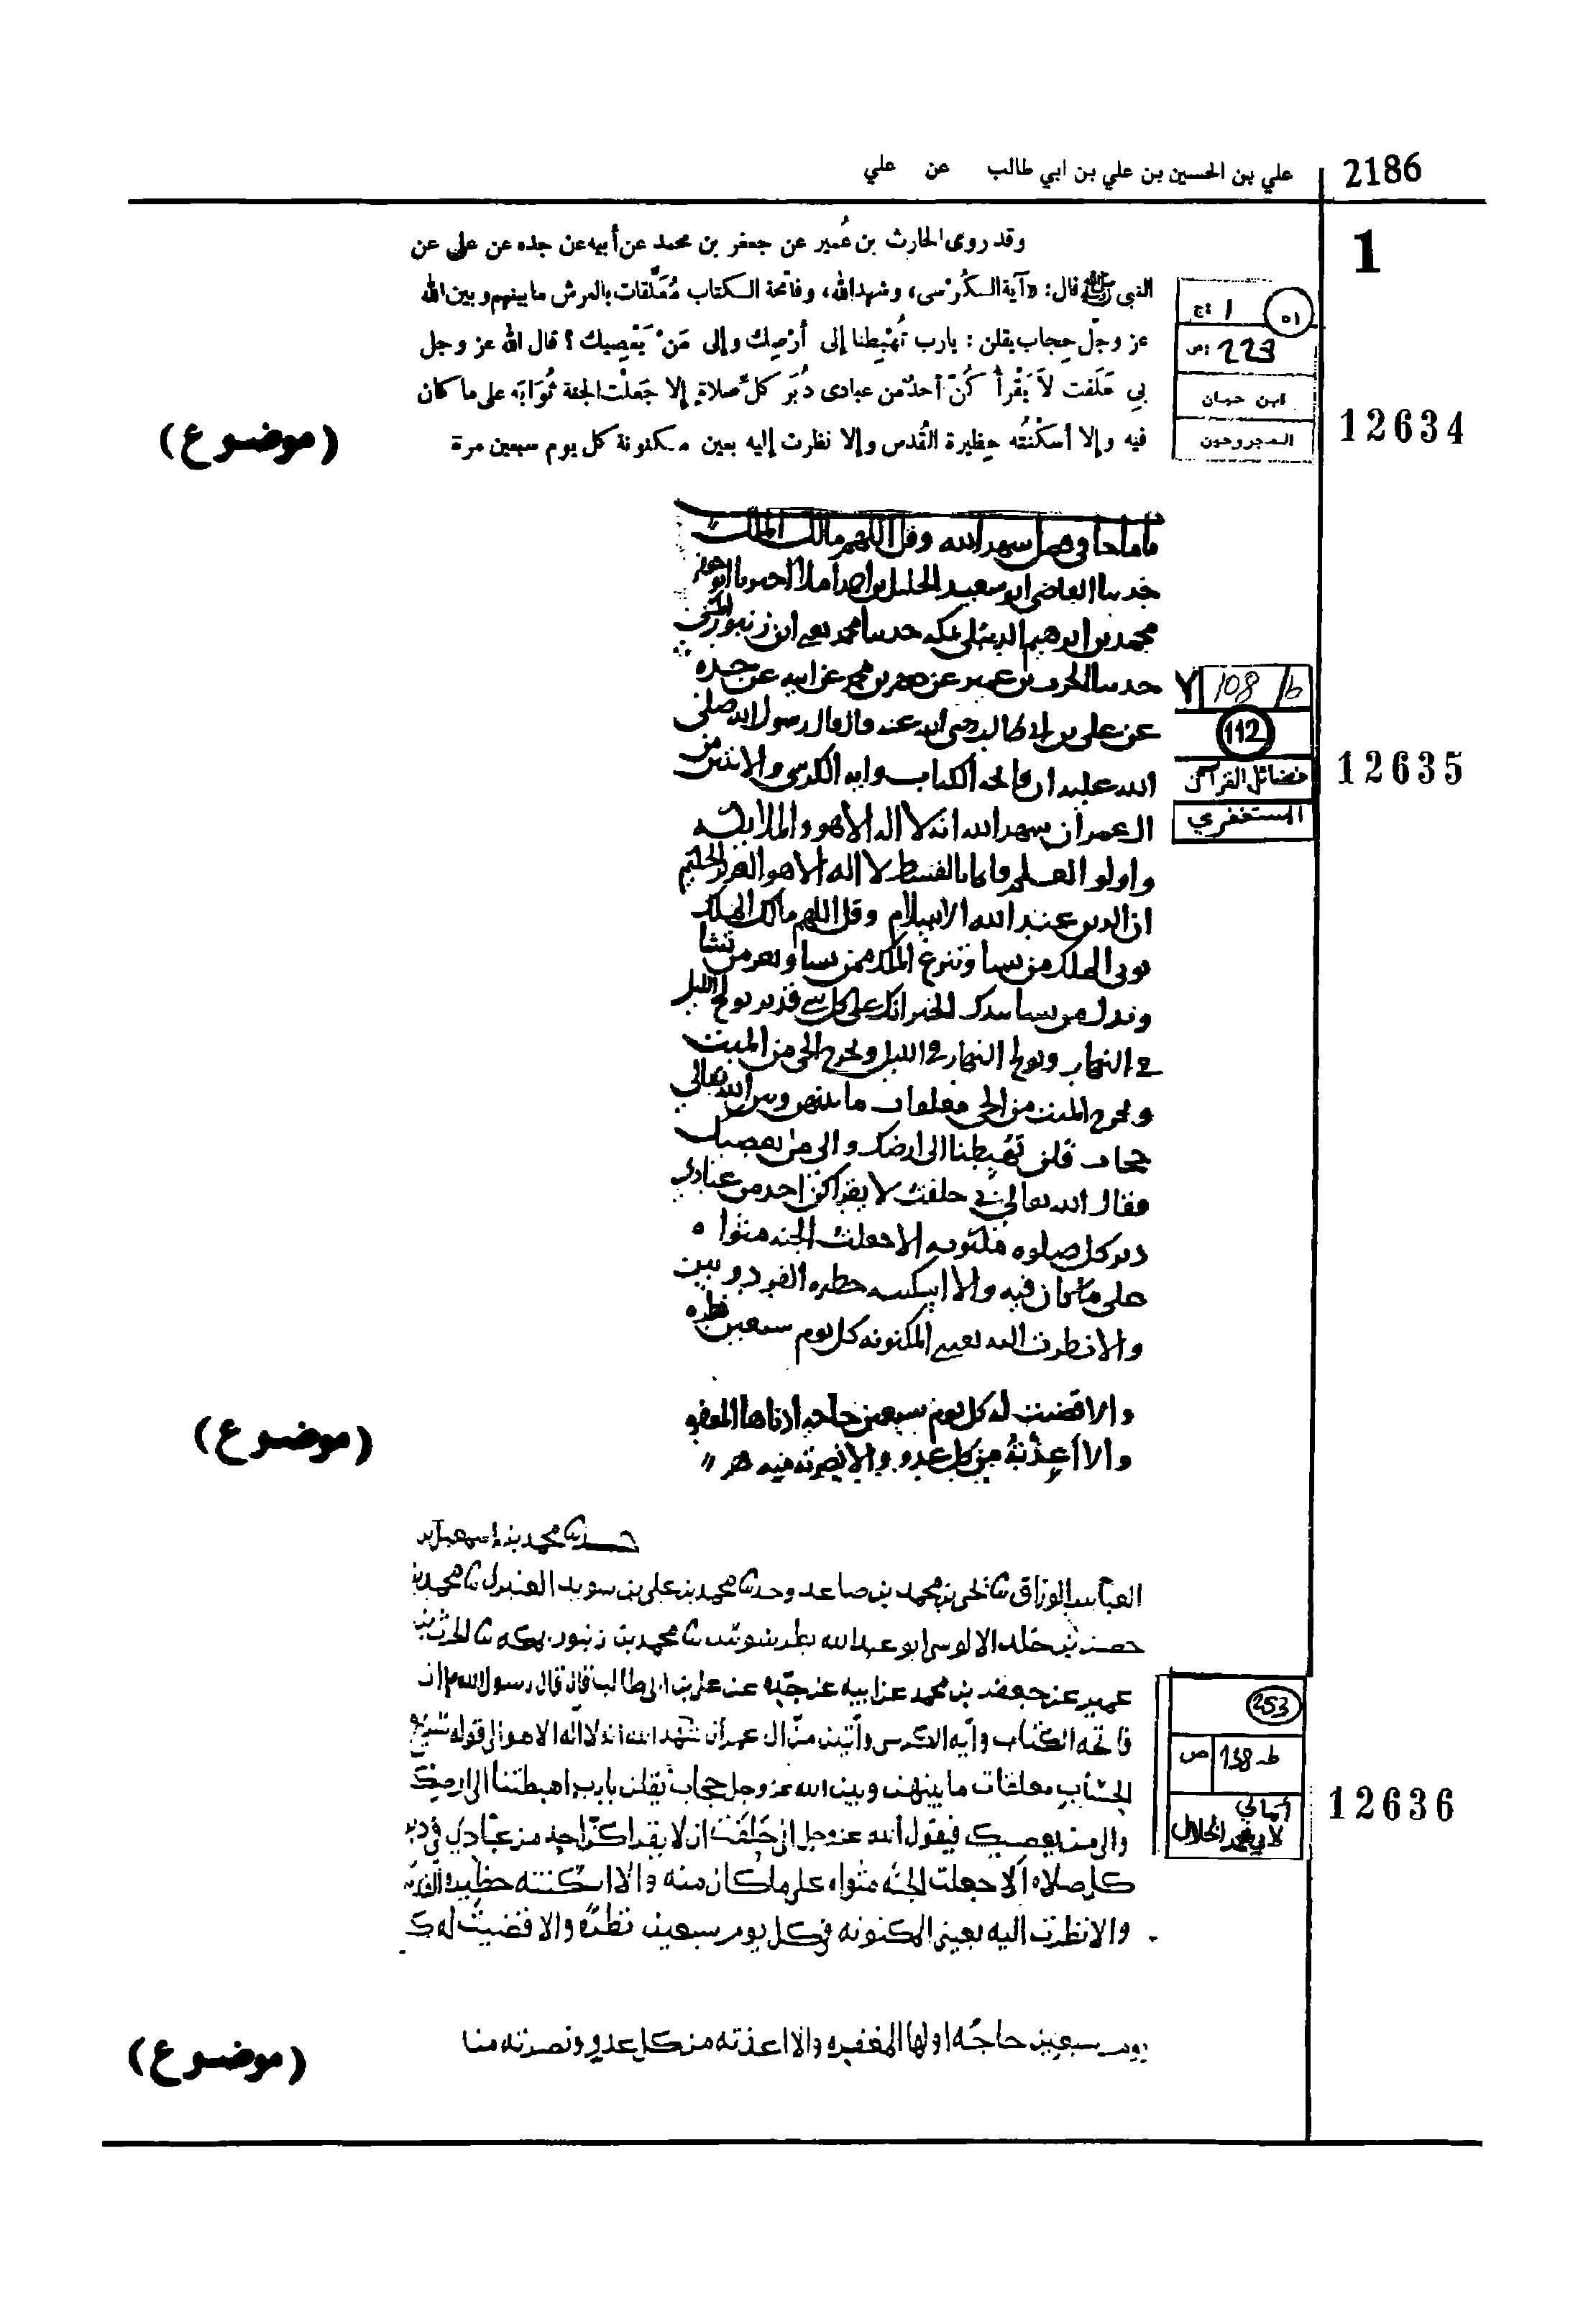 2186
علي بن الحسين بن علي بن ابي طالب عن علي
1
وقد روى الحارث بن عُمير عن جعفر بن محمد عن أبيه عن جده عن علي عن
النبي ﷺ قال: «آية الكُرْسى، وشهد الله، وفاتحة الكتاب مُعَلَّقات بالعرش ما بينهم وبين الله
عز وجلّ حِجاب يقلن : يارب تُهْبِطنا إلى أرْضِك وإلى مَنْ يَعْصِيك ؟ قال الله عز وجل
بِي حَلَفت لاَ يَقْرأ كُنّ أحدٌ من عبادى دُبَر كلّ صلاةٍ إلا جَعلْت الجنة ثُوَابَه على ما كان
فيه وإلا أسكَنْتُه حِظيرة القُدس وإلا نظرت إليه بعين مكنونة كل يوم سبعين مرة
(موضوع)
٥١ 1 ج:
ص: 223
ابن حبان
المجروحين
12634
ما جا في فضل شهد الله وقل اللهم مالك الملك
حدسا القاضي ابو سعيد الخليل بن احمد املا
محمد بن ابرهيم الديبلي بمكه حدسا محمد ابن زنبور المكي
حدسا الحرث بن عمير عن جعفر بن محمد عن ابيه عن جده
عن علي بن ابي طالب رضي الله عنه قال قال رسول الله صلى
الله عليه ان فاتحه الكتاب وايه الكرسي والايتين من
ال عمران شهد الله انه لا اله الا هو والملايكه
واولوا العلم قايما بالقسط لا اله الا هو العزيز الحكيم
ان الدين عند الله الاسلام وقل اللهم مالك الملك
توتي الملك من تشا وتنزع الملك ممن تشا وتعز من تشا
وتذل من تشا بيدك الخير انك على كل شي قدير تولج الليل
في النهار وتولج النهار في الليل وتخرج الحي من الميت
وتخرج الميت من الحي معلقات ما بينهن وبين الله تعالى
حجاب قلن تهبطنا الى ارضك والى من يعصيك
فقال الله تعالى بي حلفت لا يقراكن احد من عبادي
دبر كل صلوه مكتوبه الا جعلت الجنه مثواه
على ما كان فيه والا اسكنته حظيره الفردوس
والا نظرت اليه بعيني المكنونه كل يوم سبعين نظره
والا قضيت له كل يوم سبعين حاجه ادناها المغفره
والا أعذته من كل عدو والا نصرته منه
(موضوع)
108/b
112
فضائل القرآن
المستغفري
12635
حدثنا محمد بن اسمعيل بن
العباس الوراق ثنا يحيى بن محمد بن صاعد وحدثنا محمد بن علي بن سويد ثنا محمد بن
حصن بن خلد الالوسي ابو عبد الله بطرسوس ثنا محمد بن زنبور بمكه ثنا الحرث بن
عمير عن جعفر بن محمد عن ابيه عن جده عن علي بن ابي طالب قال قال رسول الله ان
فاتحه الكتاب وايه الكرسي وآيتين من آل عمران شهد الله انه لا اله الا هو الى قوله سريع
الحساب معلقات ما بينهن وبين الله عز وجل حجاب يقلن يا رب اهبطتنا الى ارضك
والى من يعصيك فيقول الله عز وجل اني حَلَفت ان لا يقراكن احد من عبادي في دبر
كل صلاه الا جعلت الجنه مثواه على ما كان منه والا اسكنته حظيره القدس
والا نظرت اليه بعيني المكنونه في كل يوم سبعين نظره والا قضيت له ك
يوم سبعين حاجه اولها المغفره والا اعذته من كل عدو ونصرته منه
(موضوع)
253
ط-138 ص
أمالي
لابي محمد الخلال
12636